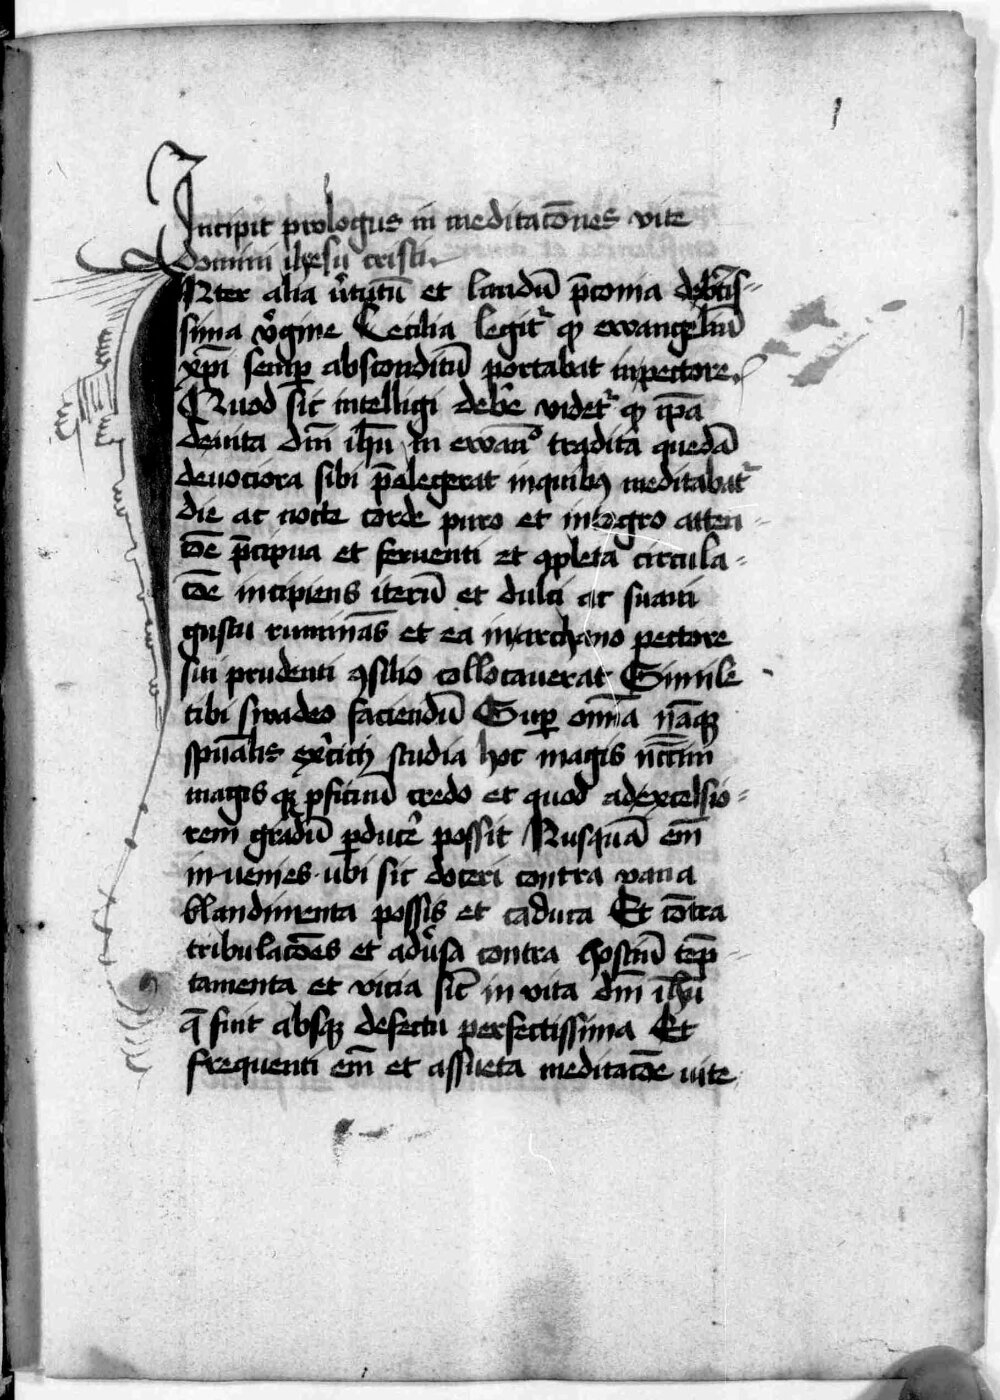 1
Incipit prologus in meditacōnes vite
domini ihesu cristi
INter alia v̓tutū et laudū p̄conia
sima v̓gine Cecilia legit͛ ꝙ ewangeliū
xp̄i semꝑ absconditū portabat inpectore
Quod sic̄ intelligi deb̓e videt͛ ꝙ ip̄a
deuita dn̄i ih̄u in ewan̄º tradita quedā
deuociora sibi p̄elegerat inquibꝫ meditabat͛
die ac nocte corde puro et integro atten-
cōe p̄cipua et feruenti et ꝯpleta circula-
cōe incipiens iterū et dulci ac suaui
gustu ruminās et ea inarchano pectore
sui prudenti ꝯsilio collocauerat Simile
tibi swadeo faciendū Suꝑ om̄ia nāqꝫ
sp̄ualis ex̓cicij studia hoc magis nc̄c̄iū
magis qꝫ ꝓficuū credo et quod adexcelsio-
rem gradū ꝑducer̓ possit Nusquā em̄
in uenies vbi sic doceri contra vana
blandimenta possis et caduca Et cōtra
tribulacōes et adu̓sa contra hostiū tēp-
tamenta et vicia sic̄ in vita dn̄i ih̄u
q̄ fuit absqꝫ defectu perfectissima Et
frequenti em̄ et assueta meditacōe vite